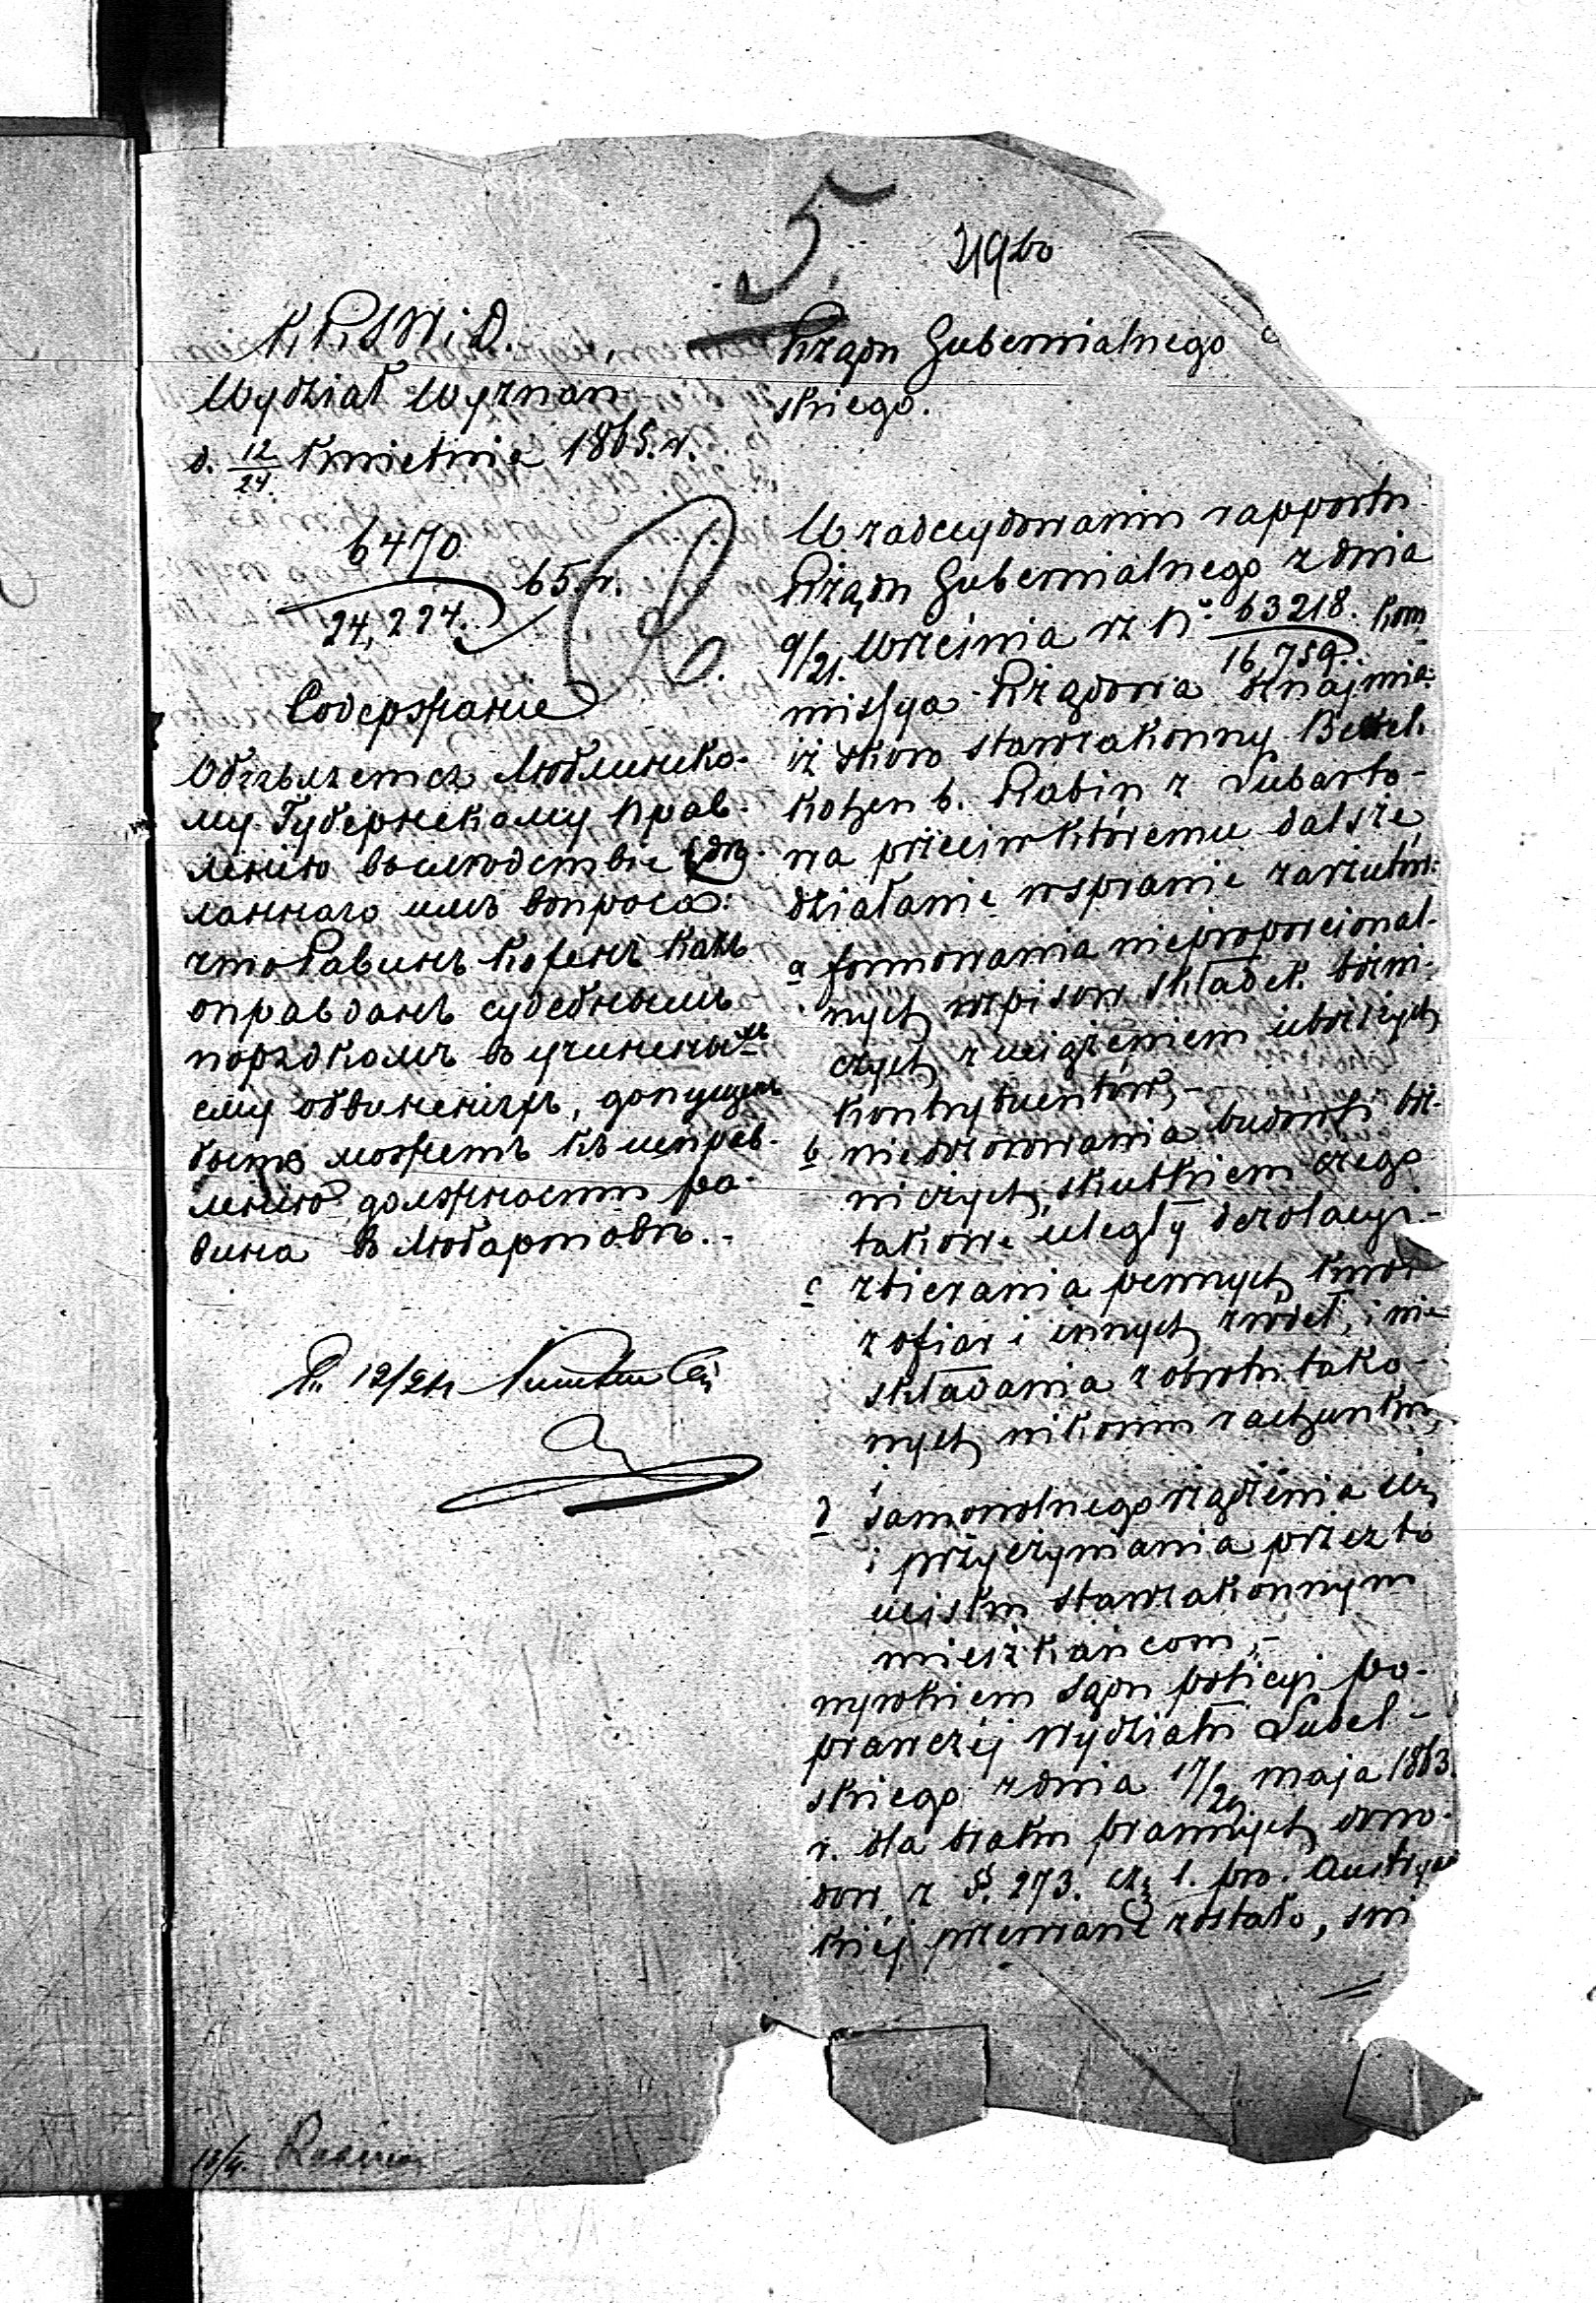 5.
219bo
K R S W i D.
Wydział Wyznań
d. 12/24 Kwietnia 1865. r.
6470
24,224.
65. r.
Содержание
Объявляется Люблинско-
му Губернскому Прав-
лению вследствие сдѣ-
ланнаго имъ вопроса:
что Равинъ Коценъ какъ
оправданъ судебнымъ
порядкомъ въ учиненныхъ
ему обвиненіяхъ, допущенъ
быть можетъ къ исправ-
ленію должности ра-
вина въ Любартовѣ.
12/24
Rządu Gubernialnego
skiego.
W zadecydowaniu rapportu
Rządu Gubernialnego z dnia
9/21. Września r z N. 63218./16,759. Kom
missya Rządowa oznajmia
iż skoro starozakonny
Kotzen b. Rabin z Lubarto-
wa przeciw któremu dalsze
działanie w sprawie zarzutów:
a formowania nieproporcional-
nych wpisow składek bożni-
czych z uciążeniem uboższych
kontrybuentów,-
b niedozorowania budowli boż-
niczych, skutkiem czego
takowe uległy dezolacyi.-
c zbierania pewnych kwot
z ofiar i innych źródeł, i nie
składania z obrotu tako-
wych nikomu rachunków,
i
d samowolnego rządzenia się
i przyczyniania przez to
ucisku starozakonnym
mieszkańcom,-
wyrokiem Sądu policyi po-
prawczéj Wydziału Lubel-
skiego z dnia 17/29 maja 1863.
r. dla braku prawnych dowo-
dow z §. 273. cz 1. pr. Austryac
kiéj przerwane zostało,